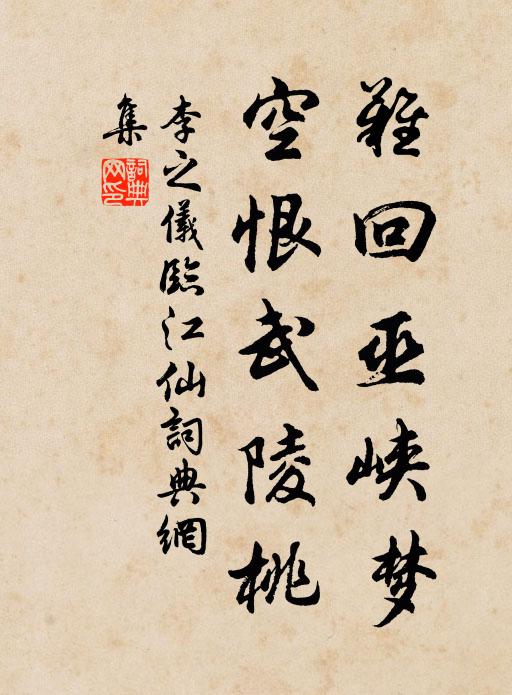 難回巫峡梦
空恨武陵桃
李之儀臨江仙詞典網
集
詞典網印